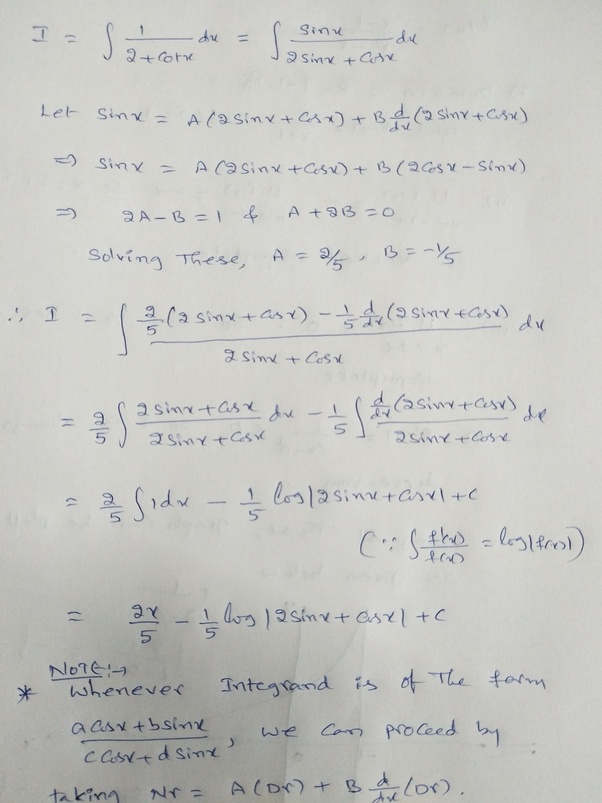 I = ∫ 1/(2+cotx) dx = ∫ sinx/(2sinx + cosx) dx
Let sinx = A(2sinx + cosx) + B d/dx (2sinx + cosx)
⇒ sinx = A(2sinx + cosx) + B(2cosx - sinx)
⇒ 2A-B = 1 & A+2B = 0
Solving These, A = 2/5, B = -1/5
∴ I = ∫ (2/5 (2sinx + cosx) - 1/5 d/dx (2sinx + cosx))/(2sinx + cosx) dx
= 2/5 ∫ (2sinx + cosx)/(2sinx + cosx) dx - 1/5 ∫ (d/dx (2sinx + cosx))/(2sinx + cosx) dx
= 2/5 ∫ 1dx - 1/5 log|2sinx + cosx| + c
(∵ ∫ f'(x)/f(x) = log|f(x)|)
= 2x/5 - 1/5 log|2sinx + cosx| + c
NOTE:→
* Whenever Integrand is of The form
(a cosx + b sinx)/(c cosx + d sinx), we can proceed by
taking Nr = A(Dr) + B d/dx (Dr).